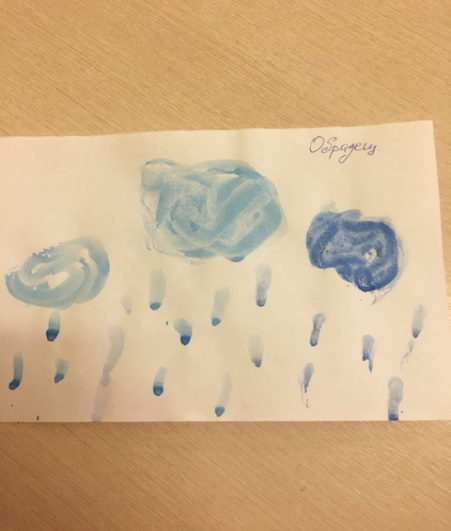 Образец